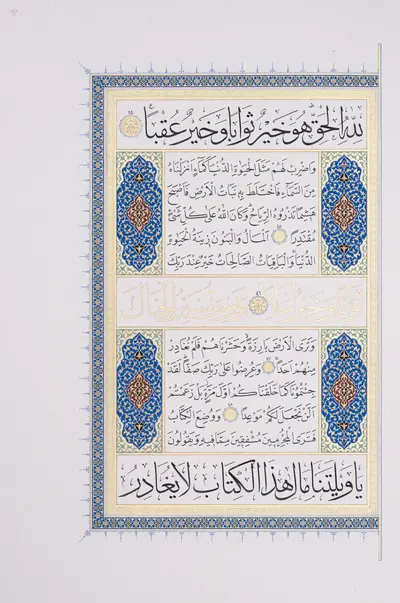 لِلّٰهِ الْحَقِّ هُوَ خَيْرٌ ثَوَابًا وَخَيْرٌ عُقْبًا
وَاضْرِبْ لَهُمْ مَثَلَ الْحَيٰوةِ الدُّنْيَا كَمَاءٍ اَنْزَلْنَاهُ
مِنَ السَّمَاءِ فَاخْتَلَطَ بِهِ نَبَاتُ الْاَرْضِ فَاَصْبَحَ
هَشِيمًا تَذْرُوهُ الرِّيَاحُ وَكَانَ اللّٰهُ عَلٰى كُلِّ شَيْءٍ
مُقْتَدِرًا اَلْمَالُ وَالْبَنُونَ زِينَةُ الْحَيٰوةِ
الدُّنْيَا وَالْبَاقِيَاتُ الصَّالِحَاتُ خَيْرٌ عِنْدَ رَبِّكَ
ثَوَابًا وَخَيْرٌ اَمَلًا وَيَوْمَ نُسَيِّرُ الْجِبَالَ
وَتَرَى الْاَرْضَ بَارِزَةً وَحَشَرْنَاهُمْ فَلَمْ نُغَادِرْ
مِنْهُمْ اَحَدًا وَعُرِضُوا عَلٰى رَبِّكَ صَفًّا لَقَدْ
جِئْتُمُونَا كَمَا خَلَقْنَاكُمْ اَوَّلَ مَرَّةٍ بَلْ زَعَمْتُمْ
اَلَّنْ نَجْعَلَ لَكُمْ مَوْعِدًا وَوُضِعَ الْكِتَابُ
فَتَرَى الْمُجْرِمِينَ مُشْفِقِينَ مِمَّا فِيهِ وَيَقُولُونَ
يَا وَيْلَتَنَا مَالِ هٰذَا الْكِتَابِ لَا يُغَادِرُ